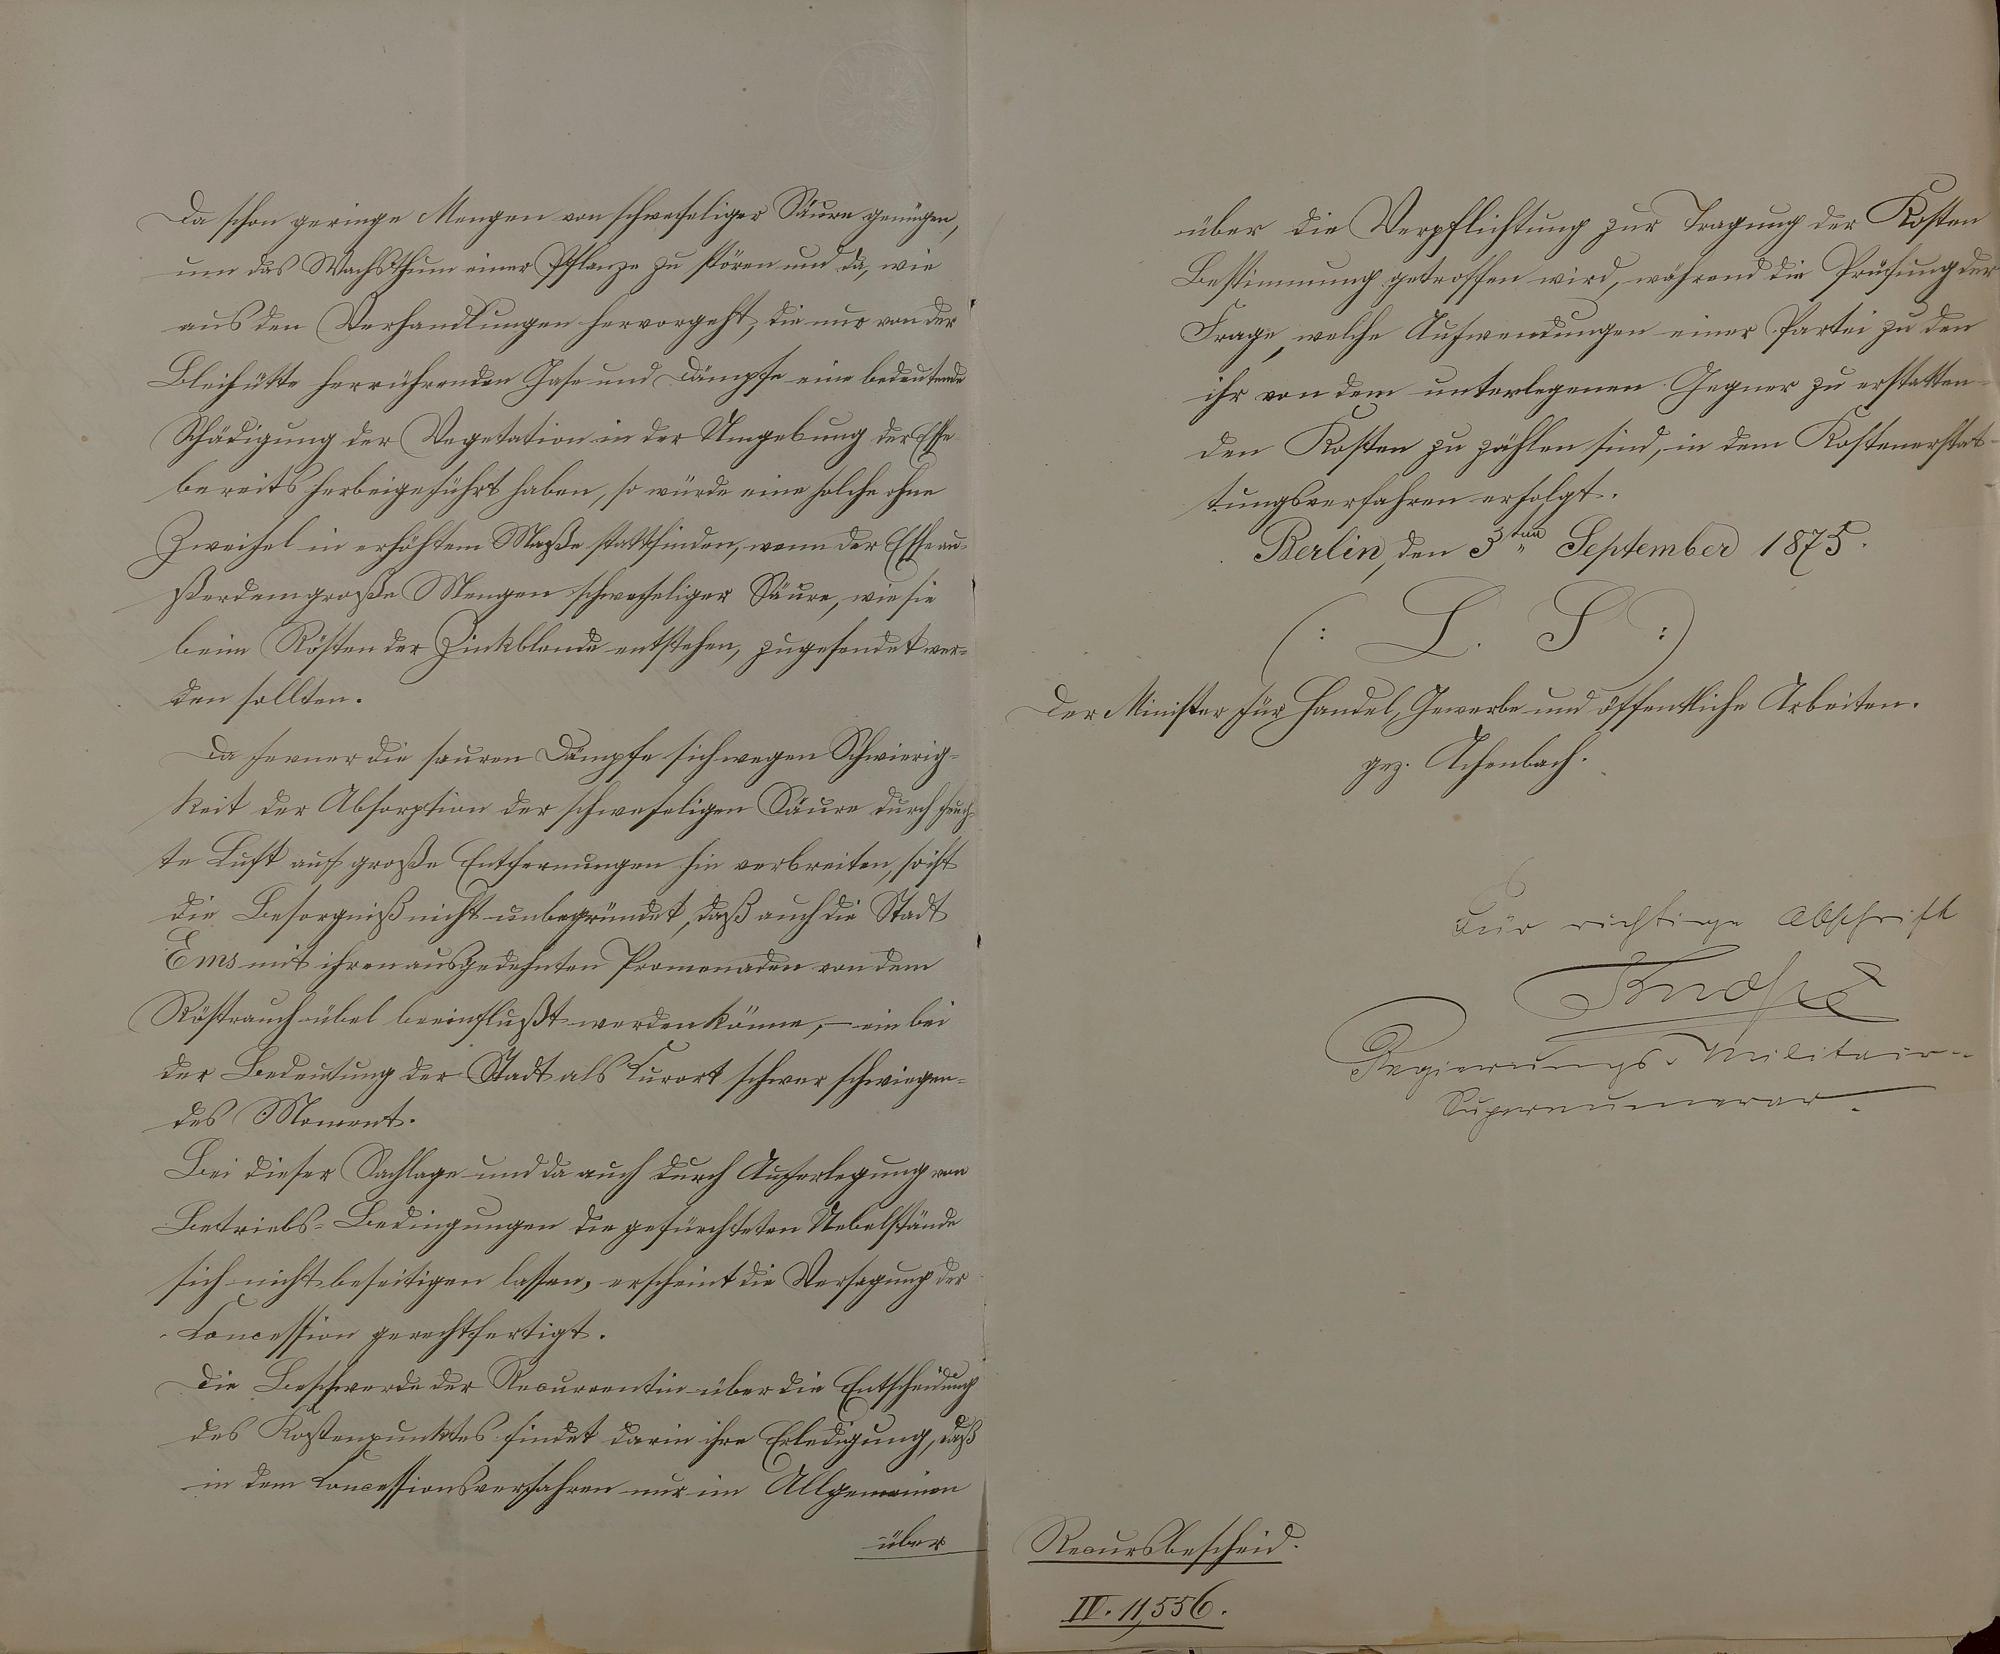 Da schon geringe Mengen von schwefeliger Säure genügen,
um das Wachsthum einer Pflanze zu stören und da, wie
aus den Verhandlungen hervorgeht, die nur von der
Bleihütte herrührenden Gase und Dämpfe eine bedeutende
Schädigung der Vegetation in der Umgebung der Esse
bereits herbeigeführt haben, so würde eine solche ohne
Zweifel in erhöhtem Maße stattfinden, wenn der Esse au-
ßerdem große Mengen schwefeliger Säure, wie sie
beim Rösten der Zinkblende entstehen, zugesendet wer-
den sollten.
Da ferner die sauren Dämpfe sich wegen Schwierig-
keit der Absorption der schwefeligen Säure durch feuch-
te Luft auf große Entfernungen hin verbreiten, so ist
die Besorgniß nicht unbegründet, daß auch die Stadt
Ems mit ihren ausgedehnten Promenaden von dem
Röstrauch übel beeinflußt werden könne, – ein bei
der Bedeutung der Stadt als Curort schwer schwiegen-
des Moment.
Bei dieser Sachlage und da auch durch Auferlegung von
Betriebs-Bedingungen die gefürchteten Uebelstände
sich nicht beseitigen lassen, erscheint die Versagung der
Concession gerechtfertigt.
Die Beschwerde der Recurrentin über die Entscheidung
des Kostenpunktes findet darin ihre Erledigung, daß
in dem Concessionsverfahren nur im Allgemeinen
über
über die Verpflichtung zur Tragung der Kosten
Bestimmung getroffen wird, während die Prüfung der
Frage, welche Aufwendungen einer Partei zu den
ihr von dem unterlegenen Gegner zu erstatten-
den Kosten zu zählen sind, in dem Kostenerstat-
tungsverfahren erfolgt.
Berlin, den 3ten September 1875.
(: L. S :)
Der Minister für Handel, Gewerbe und öffentliche Arbeiten.
gez. Achenbach.
Für richtige Abschrift
Regierungs-Militair-
Supernumerar.
Recursbescheid.
IV. 11,556.